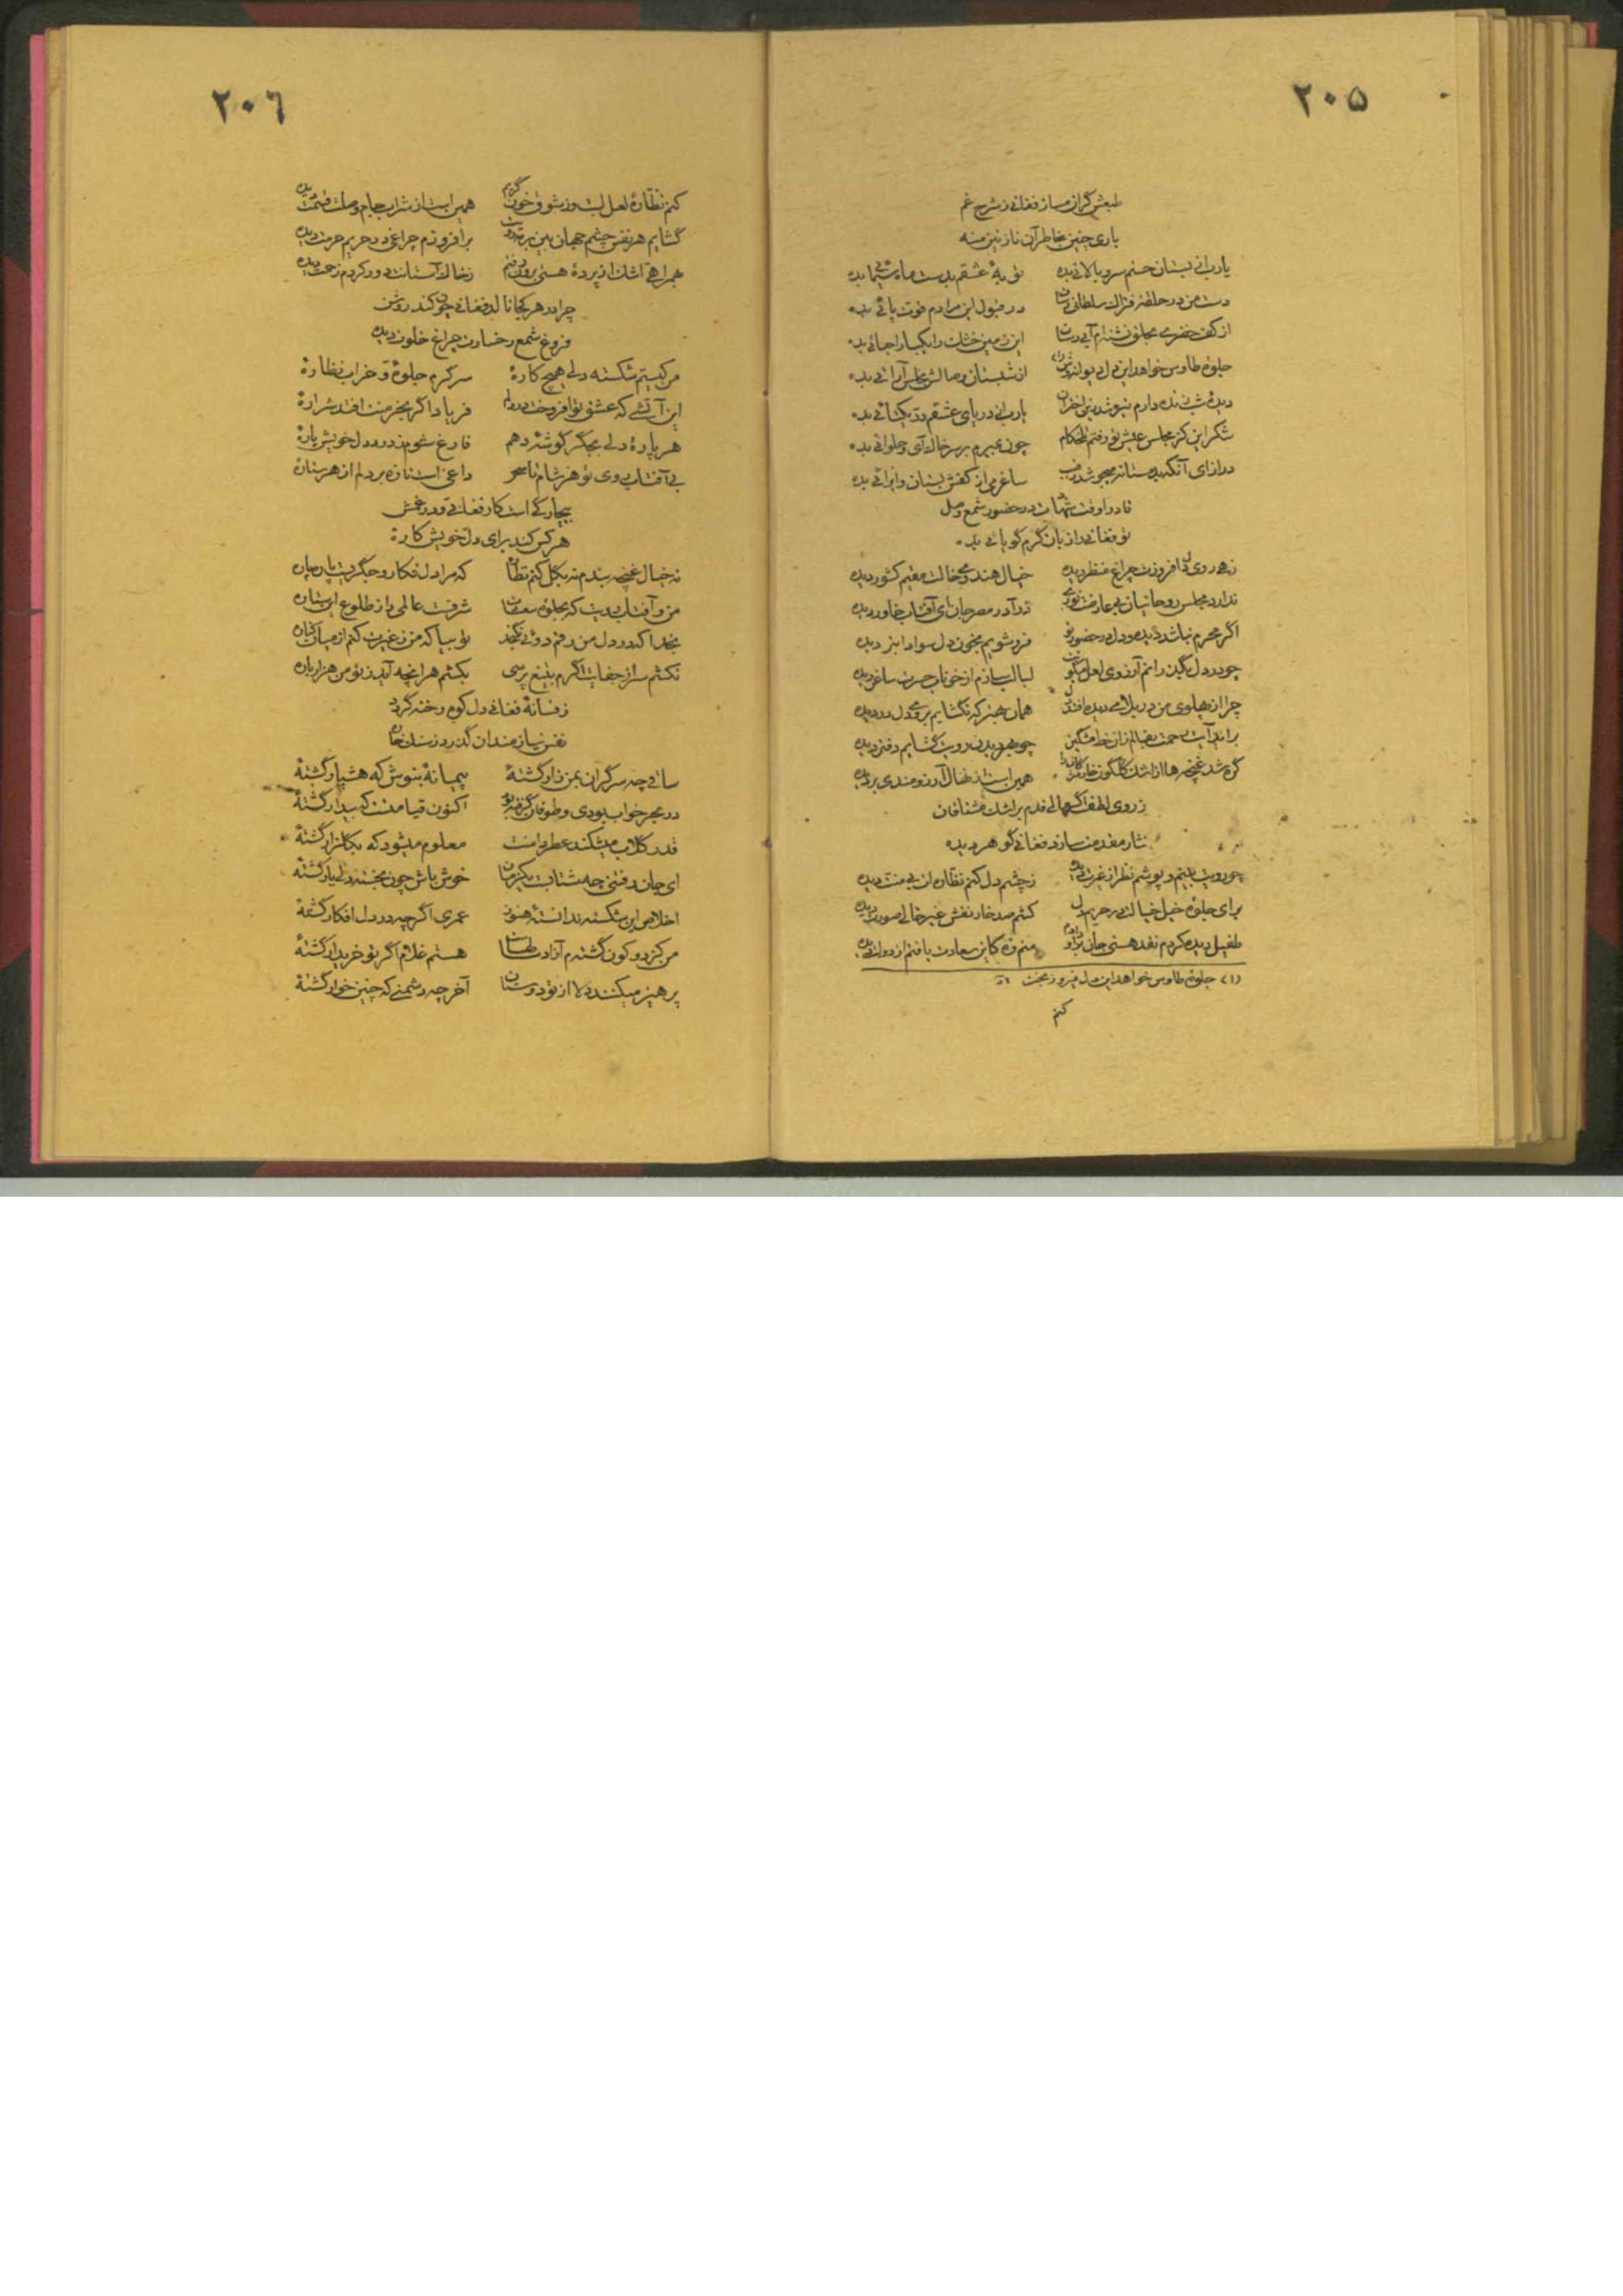 ۲۰۵
طبعش گران مساز فغانی ز شرح غم
باری چنین بخاطر آن نازنین منه
یارب از بستان حسنم سرو بالائی بده
دست من در حلقه فتراک سلطانی رسان در قبول این مرادم قوت پائی بده
از کف خضری بحلق تشنه‌ام آبی رسان این زمین خشک را یکبار احیائی بده
جلوه طاوس خواهد این دل دیوانه‌وش (۱) از شبستان وصالش مجلس آرائی بده
یارب از دریای عشقم در یکتائی بده
شکر این کز مجلس عیش تو رفتم تلخکام چون بمیرم بر سر خاک آی و حلوائی بده
ساغر می از کفش بستان و ایرائی بده
در حضور شمع وصل
تو فغانی را زبان گرم گویائی بده
زهی روی دل افروزت چراغ منظر دیده خیال هندوی خالت مقیم کشور دیده
ندارد مجلس روحانیان بی عارضت نوری درآ در مصر جان ای آفتاب خاور دیده
اگر محرم نباشد دیده و دل در حضور تو فروشویم بخون دل سواد از دیده
لبالب سازم از خوناب حسرت ساغر دیده
چرا از پهلوی من در بلا همان بهتر که نگشایم بروی دل در دیده
چو بهر دیدن رویت گشایم دفتر دیده
همین است از نهال آرزومندی بر دیده
ز روی لطف گهگاهی قدم بر اشک مشتاقان
نثار مقدمت سازد فغانی گوهر دیده
چو رویت بینم و پوشم نظر از غیرت دیده ز چشم دل کنم نظاره‌ات بی منت دیده
برای جلوه خیل خیالت در حریم دل کشم صد خار نقش غیر خالی صورت دیده
طفیل دیده کردم نقد هستی جان برادر کاین سعادت یافتم از دولت دیده
(۱) جلوه طاوس خواهد این دل فیروز بخت
کنم
۲۰۶
کنم نظاره لعل لبت وز شوق خون گریم همین است از شراب جام وصلت قسمت دیده
گشایم هر نفس چشم جهان بین بر رویت برافروزم چراغی در حریم حرمت دیده
ز خاک آستانت دور کردم زحمت دیده
چرا در هر کجا نالد فغانی چون کند روشن
فروغ شمع رخسارت چراغ خلوت دیده
من کیستم شکسته دلی هیچ کارهٔ سرگرم جلوهٔ و خراب نظارهٔ
این آتشی که عشق تو افروخت در دلم فریاد اگر بخرمنت افتد شرارهٔ
هر پارهٔ دلی بجگر گوشهٔ دهم فارغ شوم ز درد دل خویش پارهٔ
بی آفتاب روی تو هر شام تا سحر داغی است تازه بر دلم از هر ستارهٔ
بیچارگی است کار فغانی و درد غمش
هر کس کند برای دل خویش کارهٔ
نه خیال غنچه بندم نه بگل کنم نظاره که مرا دل فکار و جگریست پاره پاره
من و آفتاب رویت که بجلوه سعادت شرفیست عالمی را ز طلوع این ستاره
بخدا که در دل من رقم دوئی نگنجد تو بیا که من ز غیرت کنم از میان کناره
نکشم سر از جفایت اگرم بتیغ پرسی بکشم هر آنچه آید ز تو من هزار باره
ز فسانهٔ فغانی دل کوه رخنه گردد
نفس نیازمندان گذرد ز سنگ خاره
ساقی چه سرگران بمن زار گشتهٔ پیمانهٔ بنوش که هشیار گشتهٔ
در بحر خواب بودی و طوفان گرفته بود اکنون قیامتست که بیدار گشتهٔ
قدر گلاب میشکند عطر دامنت معلوم میشود که بگلزار گشتهٔ
ای جان رفتنی چه شتابست یکزمان خوش باش چون بخسته دلی یار گشتهٔ
اخلاص این شکسته ندانستهٔ هنوز عمری اگرچه در دل افکار گشتهٔ
من کز دو کون گشته‌م آزاد هستم غلام اگر تو خریدار گشتهٔ
پرهیز میکنند دلا از تو دوستان آخر چه دشمنی که چنین خوار گشتهٔ